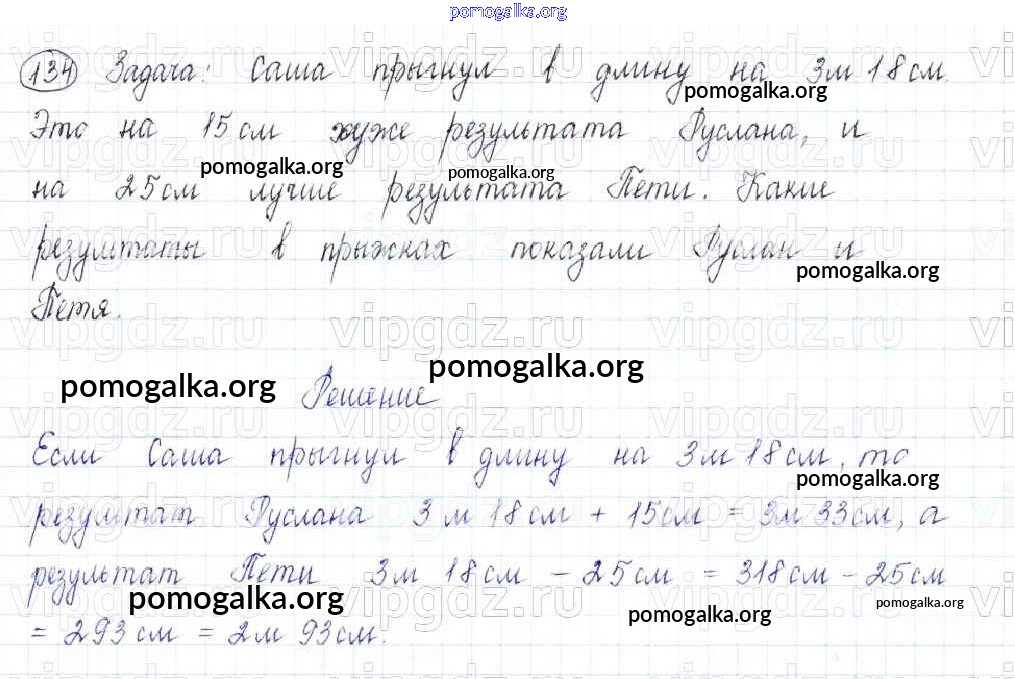 pomogalka.org
134 Задача: Саша прыгнул в длину на 3м 18см.
pomogalka.org
Это на 15 см хуже результата Руслана, и
pomogalka.org pomogalka.org
на 25см лучше результата Пети. Какие
результаты в прыжках показали Руслан и
pomogalka.org
Петя.
vipgdz.ru vipgdz.ru vipgdz.ru
pomogalka.org pomogalka.org
Решение
Если Саша прыгнул в длину на 3м 18см, то
pomogalka.org
результат Руслана 3 м 18см + 15см = 3м 33см, а
результат Пети 3м 18см - 25см = 318см - 25см
pomogalka.org pomogalka.org pomogalka.org
= 293 см = 2м 93см.